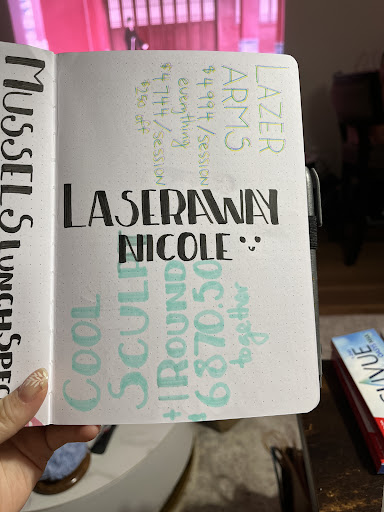 MUSSELS LUNCH SPEC
LAZER
ARMS
$4994/session
everything
$4744/session
$250 off
LASERAWAY
NICOLE
COOL
SCULPT
+1 ROUND
$6870.50
together